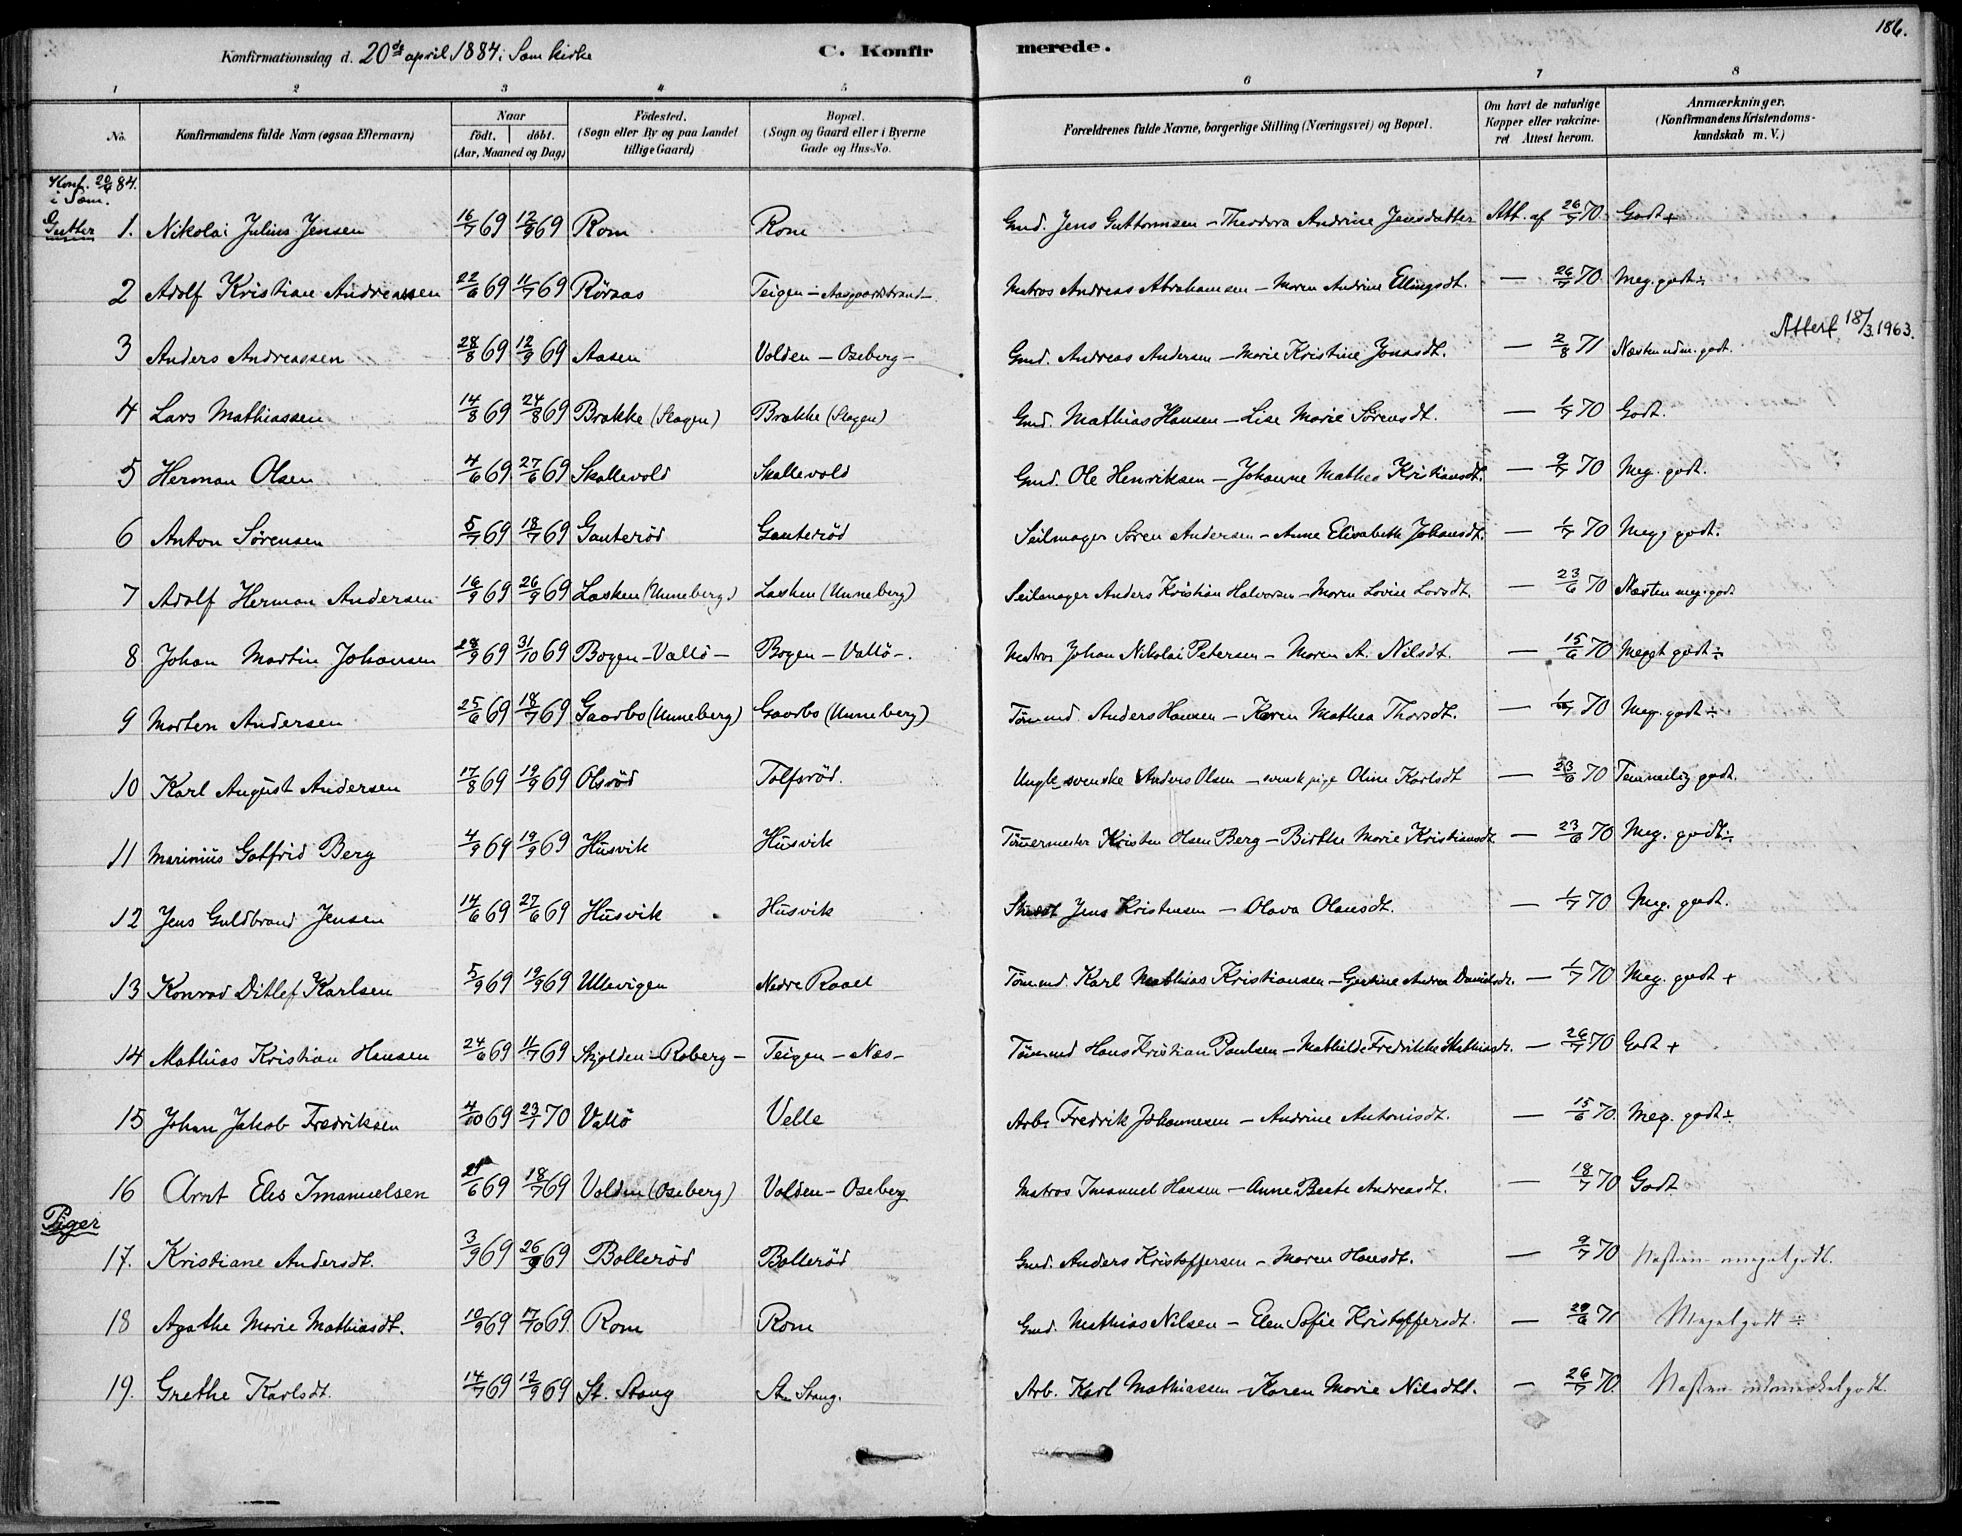 186.
Konfirmationsdag d. 20de april 1884 i Sem kirke C. Konfirmerede.
1 2 3 4 5 6 7 8
No. Konfirmandens fulde Navn (ogsaa Efternavn) Naar født. døbt. (Aar, Maaned og Dag) Fødested. (Sogn eller By og paa Landet tillige Gaard) Bopæl. (Sogn og Gaard eller i Byerne Gade og Hus-No. Forældrenes fulde Navne, borgerlige Stilling (Næringsvei) og Bopæl. Om havt de naturlige Kopper eller vakcineret Attest herom. Anmærkninger. (Konfirmandens Kristendomskundskab m. V.)
Konf. 20/4 84.
i Sem.
Gutter
1. Nikolai Julius Jensen 16/7 69 12/9 69 Rom Rom Gmd. Jens Guttormsen - Theodora Andrine Jensdatter Att. af 26/7 70 Godt +
2 Adolf Kristian Andreassen 22/6 69 11/7 69 Röraas Teigen - Aasgaardstrand - Matros Andreas Abrahamsen - Maren Andrine Ellingsdt. — 26/7 70 Meg. godt ÷
3 Anders Andreassen 28/8 69 12/9 69 Aasen Volden - Oseberg - Gmd. Andreas Andersen - Marie Kristine Jonasdt. — 2/8 71 Næsten udm. godt. Attest 18/3.1963.
4 Lars Mathiassen 14/8 69 24/8 69 Brakke (Slagen) Brakke (Slagen) Gmd. Mathias Hansen - Lise Marie Sørensdt. — 1/7 70 Godt.
5 Herman Olsen 4/6 69 27/6 69 Skallevold Skallevold Gmd. Ole Henriksen - Johanne Mathea Kristiansdt. — 9/7 70 Meg. godt.
6 Anton Sørensen 5/7 69 18/7 69 Gauterød Gauterød Seilmager Søren Andersen - Anne Elisabeth Johansdt. — 1/7 70 Meg. godt.
7 Adolf Herman Andersen 16/9 69 26/9 69 Lasken (Unneberg) Lasken (Unneberg) Seilmager Anders Kristian Halvorsen - Maren Lovise Larsdt. — 23/6 70 Næsten meg. godt
8 Johan Martin Johansen 28/9 69 31/10 69 Bogen - Vallö - Bogen - Vallö -. Matros Johan Nikolai Petersen - Maren A. Nilsdt. — 15/6 70 Meget godt ÷
9 Morten Andersen 25/6 69 18/7 69 Gaarbo (Unneberg) Gaarbo (Unneberg) Tömmd. Anders Hansen - Karen Mathea Thorsdt. — 1/7 70 Meg. godt ÷
10 Karl August Andersen 17/8 69 19/9 69 Olsröd Tolfsröd. Ungk. svenske Anders Olsen - svensk pige Oline Karlsdt — 23/6 70 Temmelig godt.
11 Marinius Gotfrid Berg 4/9 69 19/9 69 Husvik Husvik Tömmermester Kristen Olsen Berg - Birthe Marie Kristiansdt — 23/6 70 Meg. godt ÷
12 Jens Guldbrand Jensen 14/6 69 27/6 69 Husvik Husvik Jens Kristensen - Olava Olausdt. — 1/7 70 Meg. godt.
13 Konrad Ditlef Karlsen 5/9 69 19/9 69 Ullevigen Nedre Raael Tömmd. Karl Mathias Kristiansen - Gjertine Andrea Davidsdt. — 1/7 70 Meg. godt +
14 Mathias Kristian Hansen 24/6 69 11/7 69 Skjolden - Roberg - Teigen - Næs - Tömmd Hans Kristian Paulsen - Mathilde Fredrikke Mathiasdt. — 26/7 70 Godt +
15 Johan Jakob Fredriksen 4/10 69 23/1 70 Vallö Velle Arb. Fredrik Johannesen - Andrine Antonisdt. — 15/6 70. Meg. godt ÷
16 Arnt Elis Imanuelsen 21/6 69 18/7 69 Volden (Oseberg) Volden - Oseberg Matros Imanuel Hansen - Anne Beate Andreasdt. — 18/7 70 Godt
Piger
17. Kristiane Andersdt. 3/9 69 26/9 69 Bollerød Bollerød Gmd. Anders Kristoffersen - Maren Hansdt. — 9/7 70 Næsten meget godt.
18 Agathe Marie Mathiasdt. 19/9 69 17/10 69 Rom Rom Gmd. Mathias Nilsen - Elen Sofie Kristoffersdt. — 29/6 71 Meget godt ÷
19. Grethe Karlsdt. 14/7 69 12/9 69 St. Stang St. Stang. Arb. Karl Mathiassen - Karen Marie Nilsdtt. — 26/7 70. Næsten udmærket godt.